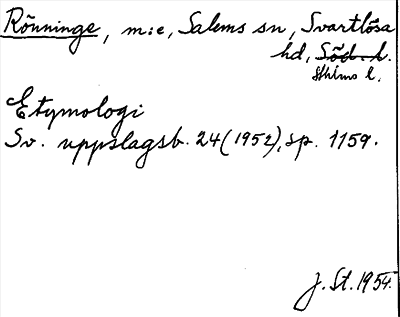 Rönninge, m:e, Salems sn, Svartlösa
hd, Söd. l.
Sthlms l.
Etymologi
Sv. uppslagsb. 24 (1952), sp. 1159.
J. St. 1954.